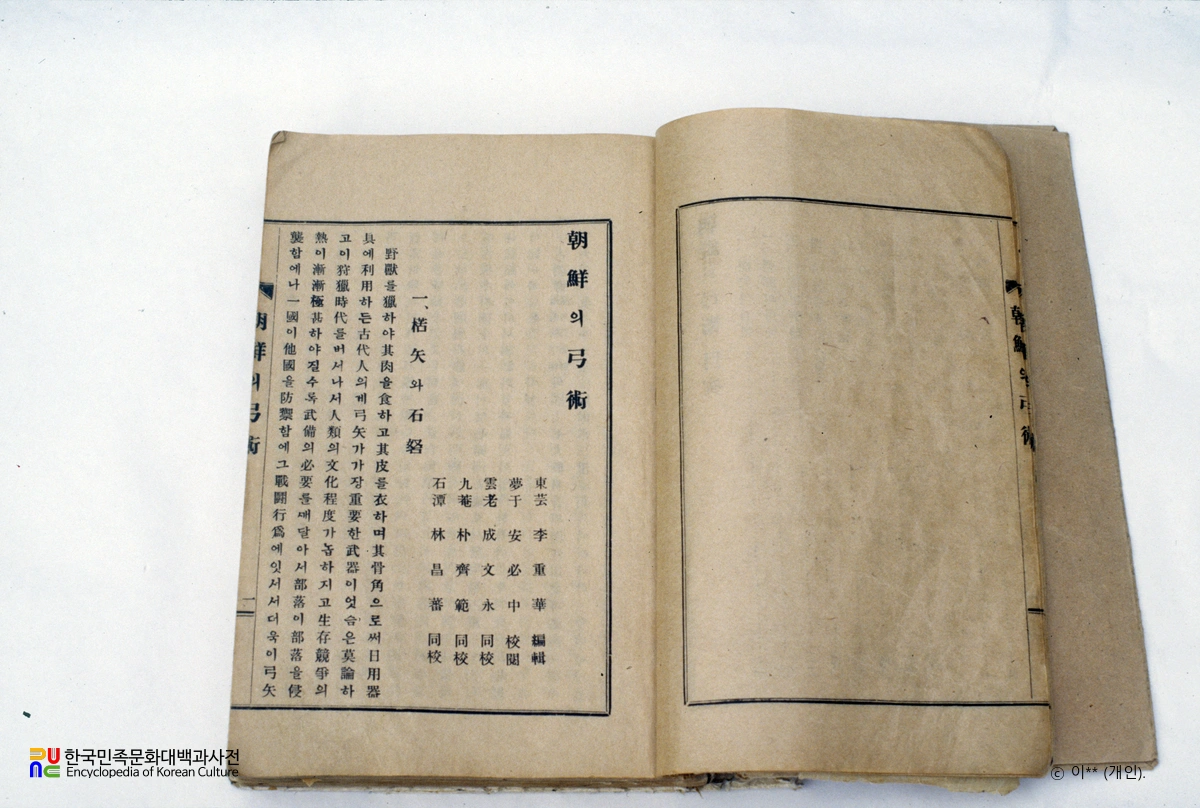 朝鮮의弓術
東芸 李重華 編輯
夢于 安必中 校閱
雲老 成文永 同校
九菴 朴齊範 同校
石潭 林昌蕃 同校
一、楛矢와石砮
野獸를獵하야其肉을食하고其皮를衣하며其骨角으로써日用器
具에利用하든古代人의게弓矢가가장重要한武器이엇슴은莫論하
고이狩獵時代를버서나서人類의文化程度가놉하지고生存競爭의
熱이漸漸極甚하야질수록武備의必要를깨달아서部落이部落을侵
襲함에나一國이他國을防禦함에그戰鬪行爲에잇서서더욱이弓矢
朝鮮의弓術
一
朝鮮의弓術
한국민족문화대백과사전
Encyclopedia of Korean Culture
© 이** (개인).